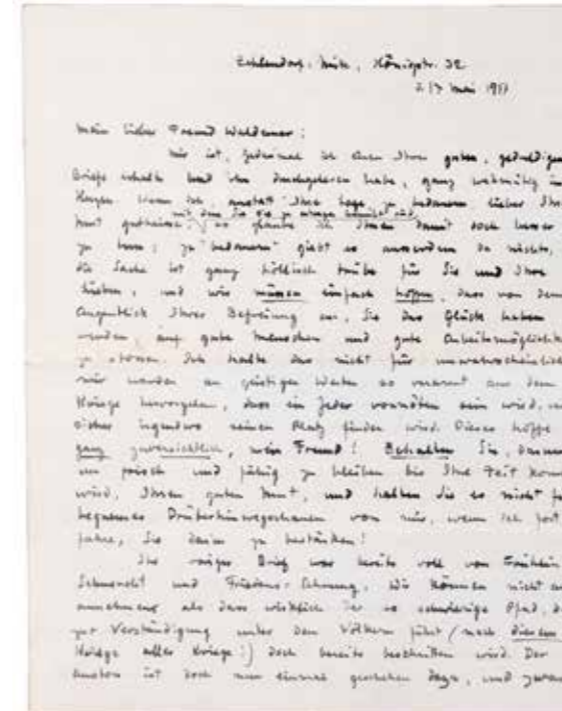 Zehlendorf-Mitte, Königstr. 32
Mai 1917
Mein lieber Freund Waldemar:
Mir ist, jedesmal ich einen Ihrer guten, geduldigen
Briefe erhalte und ihn durchgelesen habe, ganz wehmütig im
Herzen. Wenn ich, anstatt Ihre Lage zu bedauern lieber Ihren
mit dem Sie sie zu ertragen bemüht sind,
Mut gutheisse, so glaube ich Ihnen damit doch besser
zu tun; zu "bedauern" giebt es ausserdem da nichts,
die Sache ist ganz höllisch trübe für Sie und Ihre
Lieben, und wir müssen einfach hoffen, dass von dem
Augenblick Ihrer Befreiung an, Sie das Glück haben
werden, auf gute Menschen und gute Arbeitsmöglichk
zu stossen. Ich halte das nicht für unwahrscheinlich
wir werden an geistigen Werten so verarmt aus dem
Kriege hervorgehen, dass ein Jeder vonnöten sein wird,
sicher irgendwo seinen Platz finden wird. Dieses hoffe
ganz zuversichtlich, mein Freund! Behalten Sie,
um frisch und fähig zu bleiben bis Ihre Zeit kom
wird, Ihren guten Mut, und halten Sie es nicht f
bequemes Drüberhinwegschauen von mir, wenn ich fort
fahre, Sie darin zu bestärken!
Ihr voriger Brief war bereits voll von Frühlin
Sehnsucht und Friedens-Sehnung. Wir können nicht
annehmen als dass wirklich der so schwierige Pfad, d
zur Verständigung unter den Völkern führt (nach diesem
Kriege aller Kriege!) doch bereits beschritten wird. Der
Anstoss ist doch nun einmal geschehen dazu, und zwar